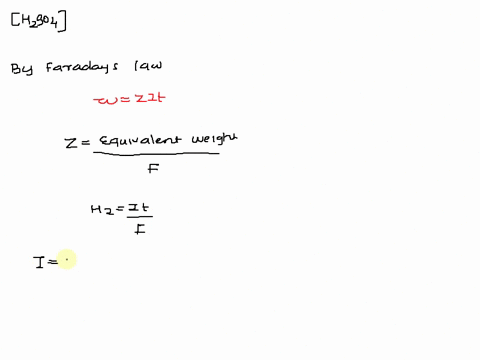 [H2SO4]
By Faradays law
w = ZIt
Z = Equivalent weight
F
H2 = It
F
I =